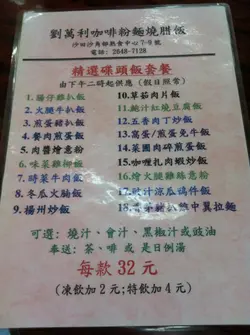 劉萬利咖啡粉麵燒腊飯
沙田沙角邨熟食中心7-9號
電話：2648-7128
精選碟頭飯套餐
由下午二時起供應（假日照常）
1. 腸仔雞扒飯
2. 火腿牛扒飯
3. 煎蛋豬扒飯
4. 餐肉煎蛋飯
5. 肉醬燴意粉
6. 味菜雞柳飯
7. 時菜牛肉飯
8. 冬瓜火腩飯
9. 楊州炒飯
10. 草菇肉片飯
11. 鮑汁紅燒豆腐飯
12. 五香肉丁炒飯
13. 窩蛋/煎蛋免牛飯
14. 菜圃肉碎煎蛋飯
15. 咖喱扎肉蝦炒飯
16. 燴火腿雞絲意粉
17. 豉汁涼瓜鴿件飯
18. 豬扒飯
可選：燒汁、會汁、黑椒汁或豉油
奉送：茶、啡 或 是日例湯
每款 32 元
（凍飲加 2 元；特飲加 4 元）